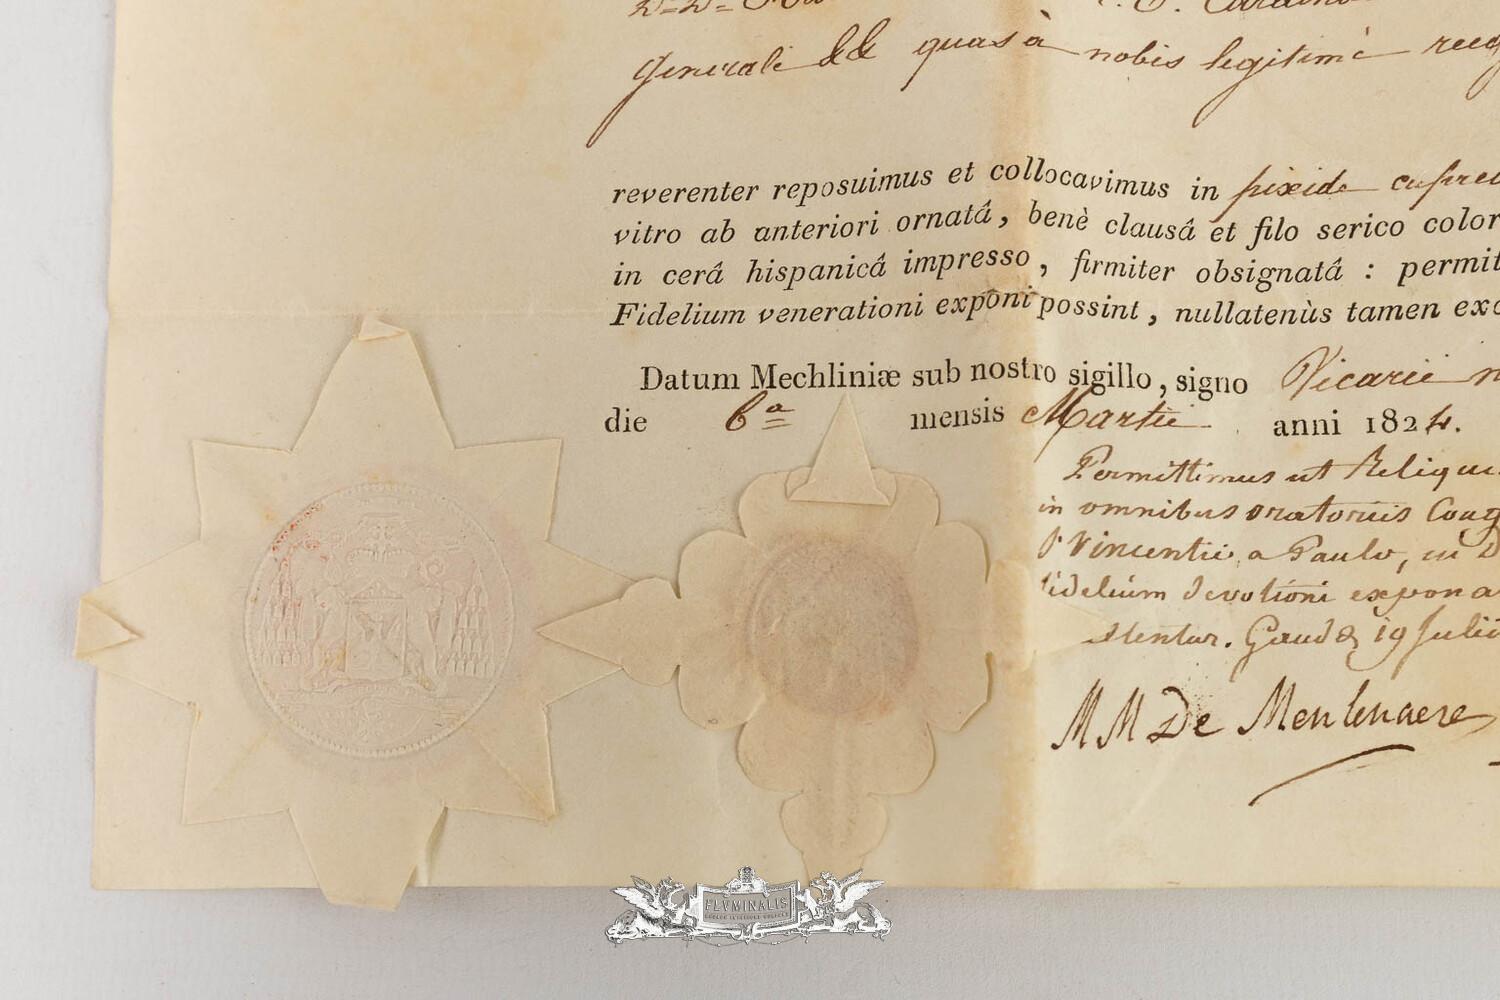 generali && quas à nobis legitimè
reverenter reposuimus et collocavimus in pixide
vitro ab anteriori ornatâ, benè clausâ et filo serico color
in cerâ hispanicâ impresso, firmiter obsignatâ : permit
Fidelium venerationi exponi possint, nullatenùs tamen
Datum Mechliniæ sub nostro sigillo, signo Vicarii
die 6ª mensis Martii anni 1824.
Permittimus ut
in omnibus oratoriis Cong
Sᵗⁱ Vincentii a Paulo, in
fidelium devotioni
19 Julii
M M De Meulenaere
FLVMINALIS